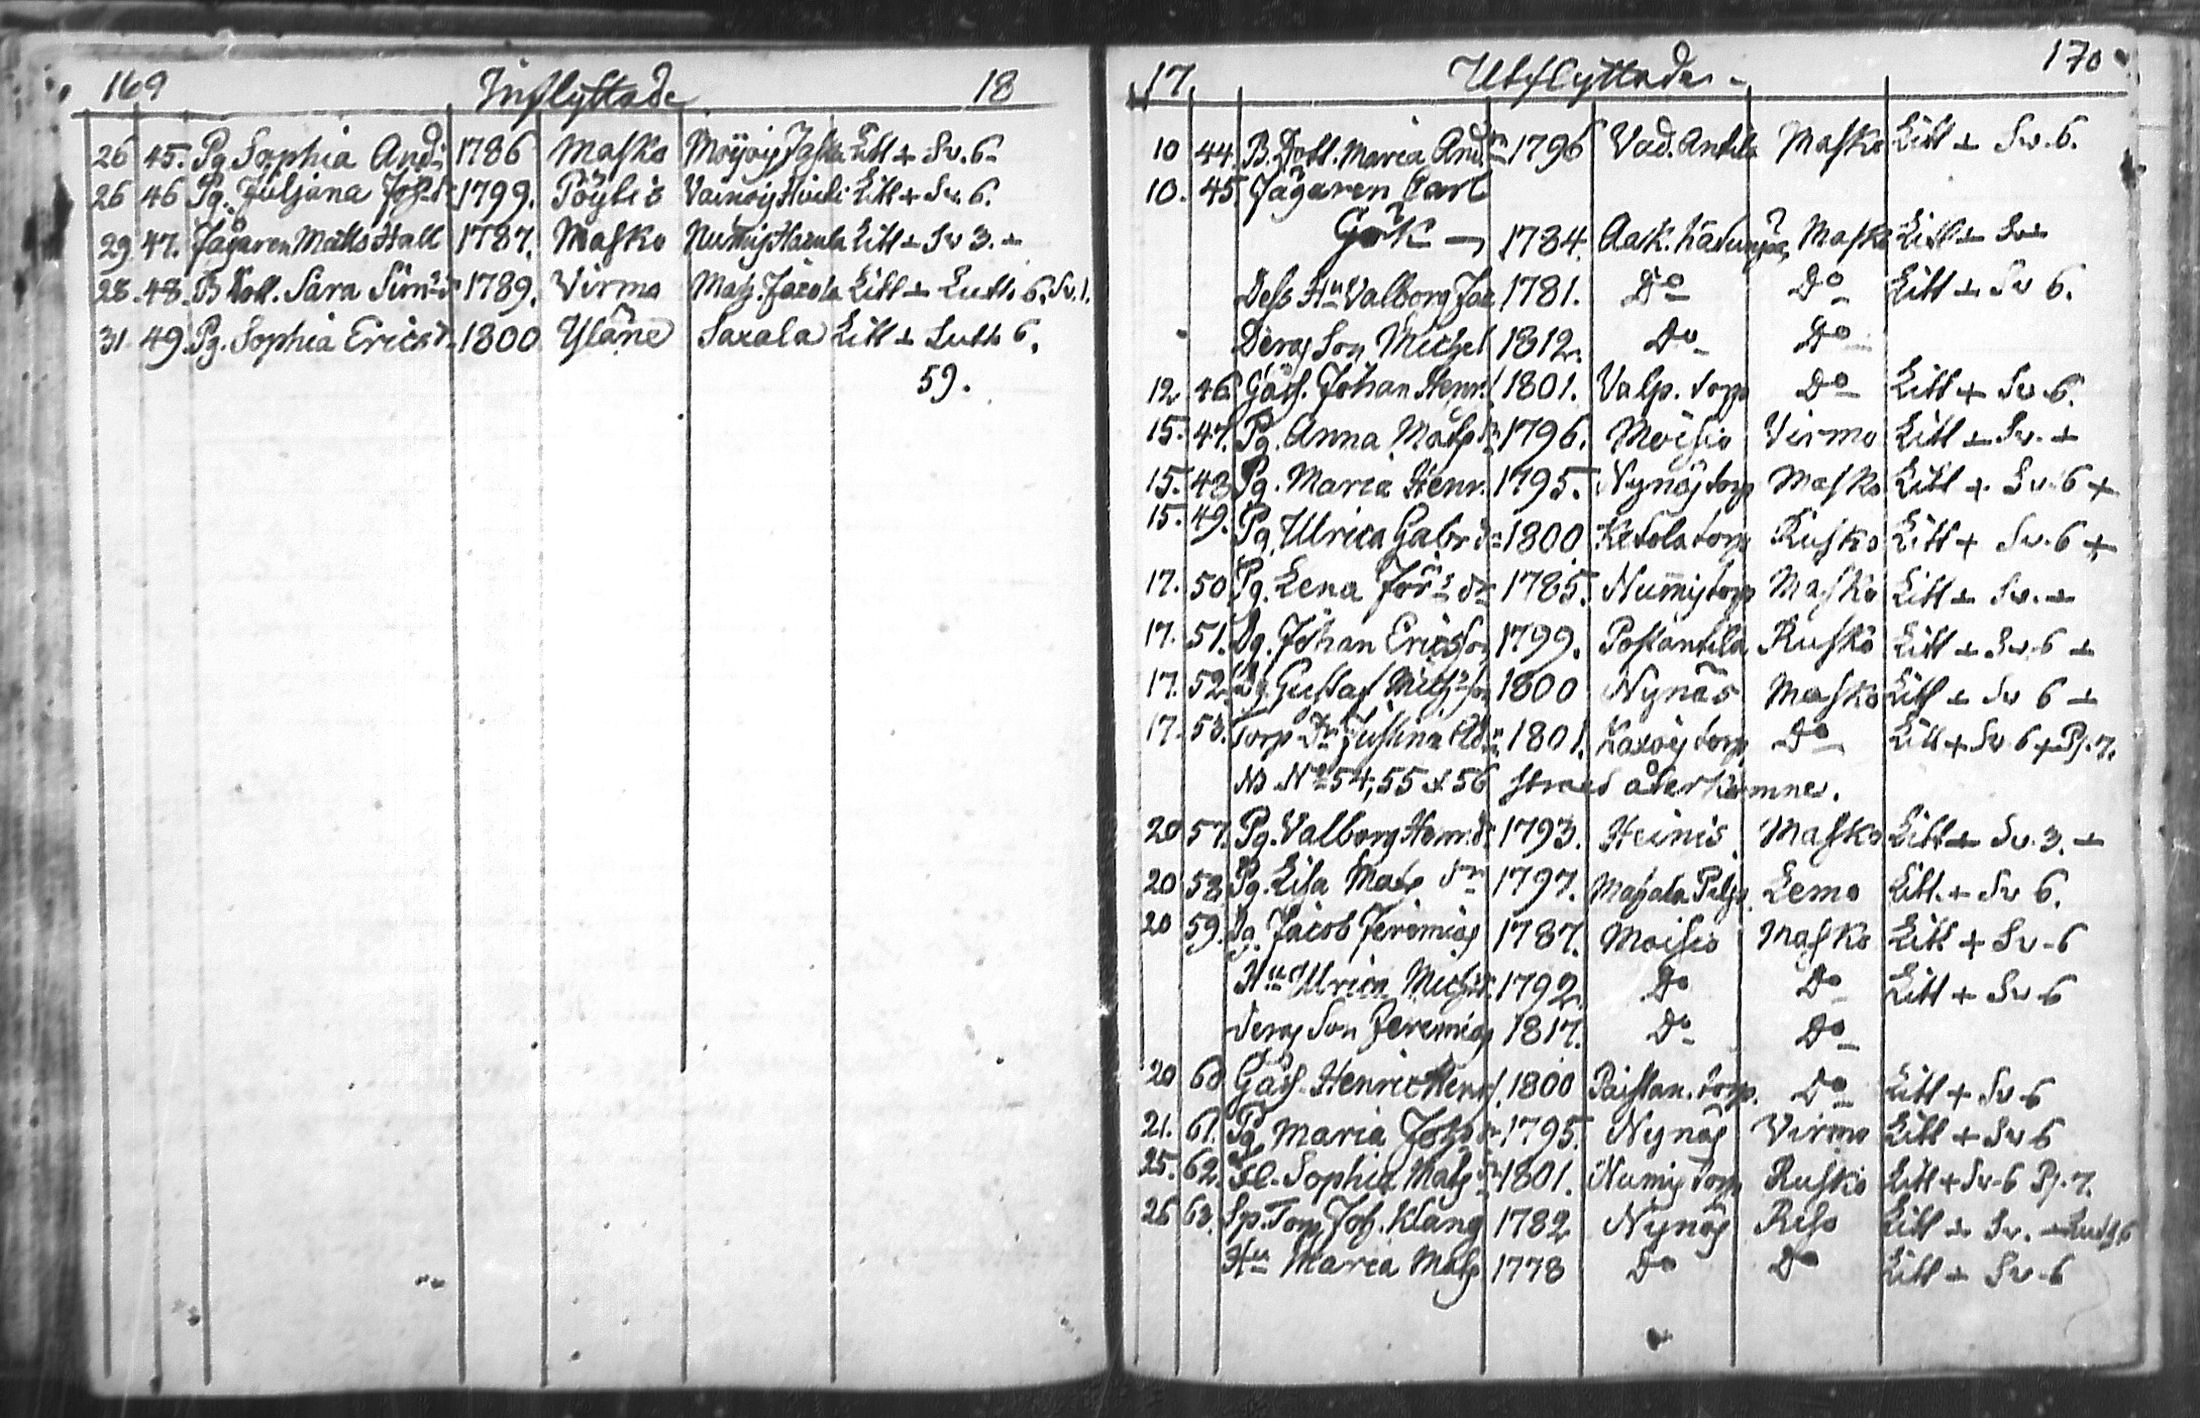 169 Inflyttade 18
26 45. Pg Sophia And: 1786 Masko Moÿois Jaska Litt + Sv. 6
26 46 Pg. Juljana Joh. d: 1799. Pöytis Litt + Sv. 6.
29 47. Jägaren Matts Hall 1787. Masko Numis Litt + Sv 3. +
28. 48. B Dott. Sara Sim: d: 1789. Virmo Mats. Jacola Litt + Luth 6. Sv. 1.
31 49 Pg. Sophia Erics d: 1800 Yläne Saxala Litt + Luth 6.
59.
17. Utflyttade 170
10 44. B. Dott. Maria And: 1796 Vad. Antila Masko Litt + Sv. 6.
10. 45. Jägaren Carl
Gök 1784. Aask. Masko Litt + Sv +
Dess Hu Valborg Jac 1781. Do Do Litt + Sv 6.
Deras Son Michel 1812. Do Do
12 46. Gåss. Johan Henr. 1801. Valp. torp Do Litt + Sv. 6.
15. 47. Pg. Anna Mats d: 1796. Moisio Virmo Litt + Sv. +
15. 48 Pg. Maria Henr. 1795. Nynäs torp Masko Litt + Sv. 6 +
15. 49. Pg. Ulrica Gabr d: 1800 Ketola torp Rusko Litt + Sv. 6 +
17. 50 Pg. Lena Jör: dr 1785. Numis torp Masko Litt + Sv. +
17. 51. Dg. Johan Ericsson 1799. Postantila Rusko Litt + Sv 6 +
17. 52. Dg. Gustaf Mich: son 1800 Nynäs Masko Litt + Sv 6 +
17. 53. Torp Dr Justina 1801. torp Do Litt + Sv 6 + Ps. 7.
NB No 54, 55 & 56 straxt återkomne.
20 57. Pg. Valborg Henr. d: 1793. Heinis Masko Litt + Sv. 3. +
20 58 Pg. Lisa Mats dr 1797. Lemo Litt. + Sv 6.
20 59. Dg. Jacob Jeremias 1787. Moisio Masko Litt + Sv - 6
Hu Ulrica Mich: 1792. Do Do Litt + Sv 6
Deras Son Jeremias 1817. Do Do
20 60 Gåss. Henric Henr. 1800 Paistan. torp. Do Litt + Sv 6
21. 61. Pg. Maria Joh. d: 1795. Nynäs Virmo Litt + Sv 6
25. 62. Fl. Sophia Mats d: 1801. Numis torp Rusko Litt + Sv. 6 Ps. 7.
26 63. Sp. Torp. Joh. Klang 1782 Nynäs Reso Litt + Sv. + Luth 6
Hu Maria Mats 1778 Do Do Litt + Sv - 6